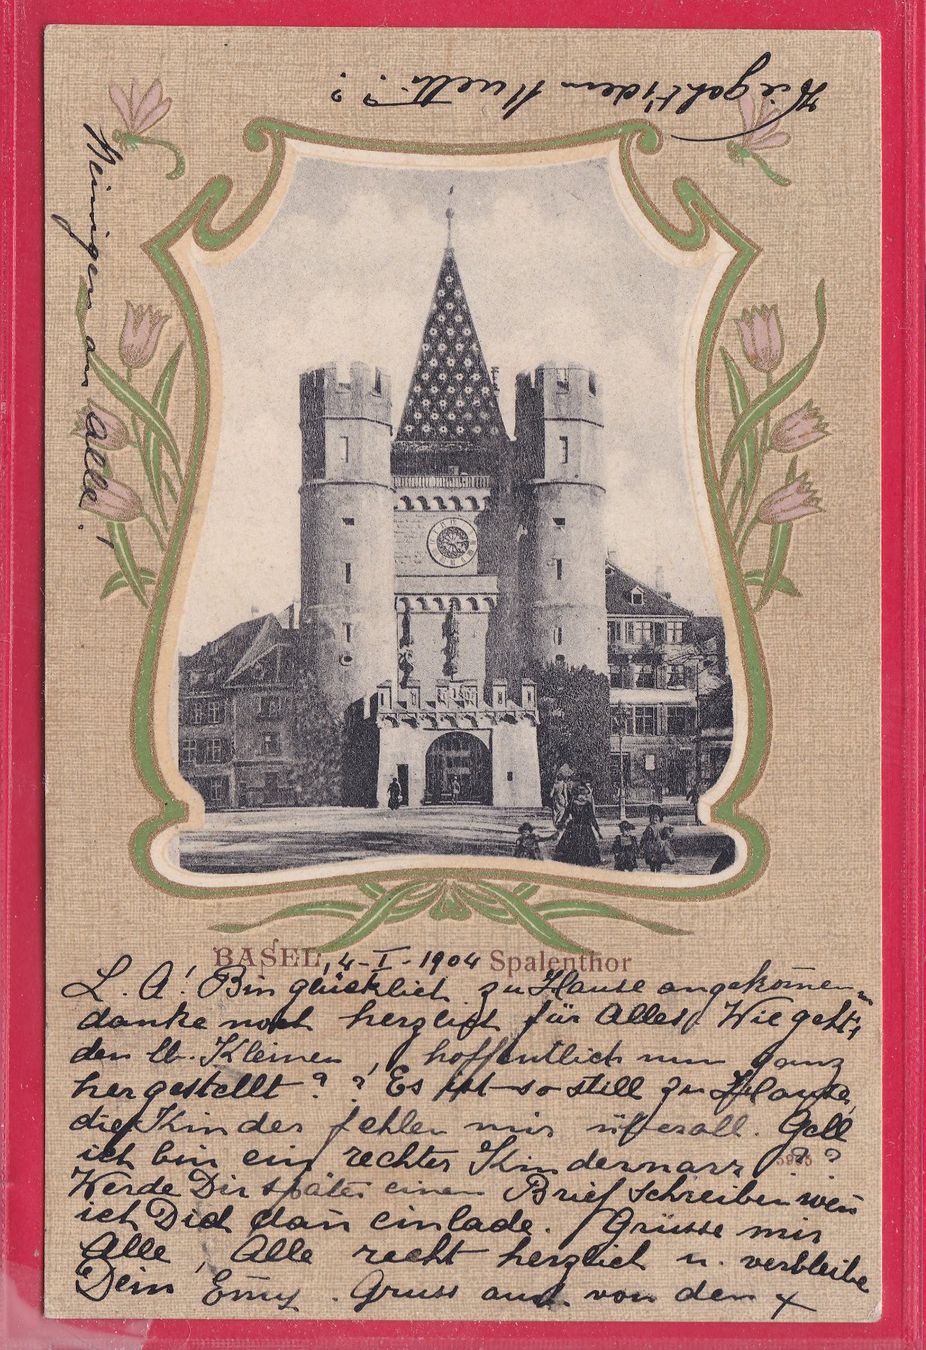 Wie geht's dem Muetti??
BASEL, 4-I-1904 Spalenthor
L. A! Bin glücklich zu Hause angekom̄en
danke noch herzlich für Alles. Wie geht's
den lb. Kleinen, hoffentlich nun ganz
hergestellt?? Es ist so still zu Hause,
die Kinder fehlen mir überall. Gell
ich bin ein rechter Kindernarr??
Werde Dir später einen Brief schreiben wen̄
ich Dich dan̄ einlade. Grüsse mir
Alle, Alle recht herzlich u. verbleibe
Dein Em̄y. Gruss auch von den
Meinigen an Alle!